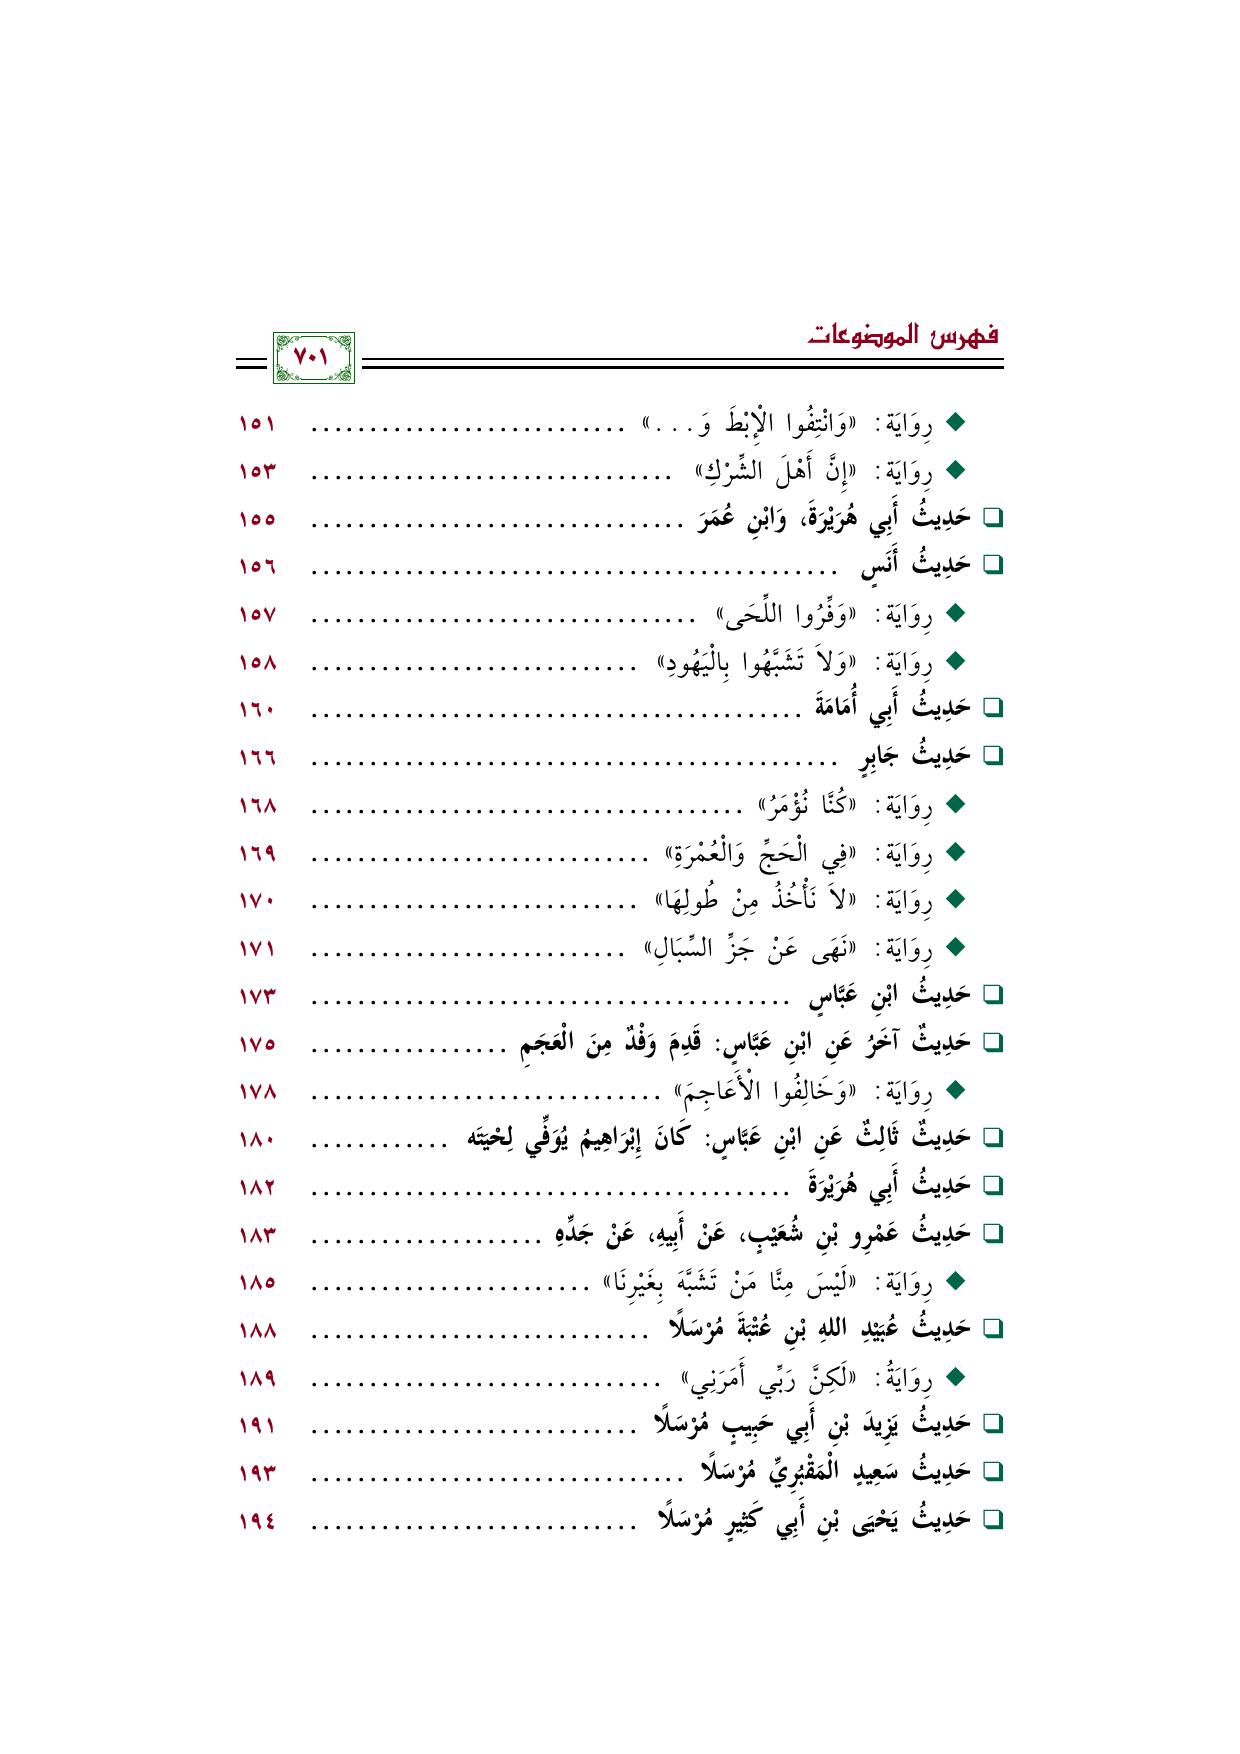 فهرس الموضوعات
٧٠١
◆ رِوَايَة: «وَانْتِفُوا الْإِبْطَ وَ...» ........................... ١٥١
◆ رِوَايَة: «إِنَّ أَهْلَ الشِّرْكِ» ............................... ١٥٣
❑ حَدِيثُ أَبِي هُرَيْرَةَ، وَابْنِ عُمَرَ ................................ ١٥٥
❑ حَدِيثُ أَنَسٍ ............................................. ١٥٦
◆ رِوَايَة: «وَفِّرُوا اللِّحَى» ................................. ١٥٧
◆ رِوَايَة: «وَلاَ تَشَبَّهُوا بِالْيَهُودِ» ............................ ١٥٨
❑ حَدِيثُ أَبِي أُمَامَةَ .......................................... ١٦٠
❑ حَدِيثُ جَابِرٍ ............................................. ١٦٦
◆ رِوَايَة: «كُنَّا نُؤْمَرُ» ..................................... ١٦٨
◆ رِوَايَة: «فِي الْحَجِّ وَالْعُمْرَةِ» ............................. ١٦٩
◆ رِوَايَة: «لاَ نَأْخُذُ مِنْ طُولِهَا» ............................ ١٧٠
◆ رِوَايَة: «نَهَى عَنْ جَزِّ السِّبَالِ» ........................... ١٧١
❑ حَدِيثُ ابْنِ عَبَّاسٍ ......................................... ١٧٣
❑ حَدِيثٌ آخَرُ عَنِ ابْنِ عَبَّاسٍ: قَدِمَ وَفْدٌ مِنَ الْعَجَمِ ................. ١٧٥
◆ رِوَايَة: «وَخَالِفُوا الْأَعَاجِمَ» .............................. ١٧٨
❑ حَدِيثٌ ثَالِثٌ عَنِ ابْنِ عَبَّاسٍ: كَانَ إِبْرَاهِيمُ يُوَفِّي لِحْيَتَه ............ ١٨٠
❑ حَدِيثُ أَبِي هُرَيْرَةَ ......................................... ١٨٢
❑ حَدِيثُ عَمْرِو بْنِ شُعَيْبٍ، عَنْ أَبِيهِ، عَنْ جَدِّهِ .................... ١٨٣
◆ رِوَايَة: «لَيْسَ مِنَّا مَنْ تَشَبَّهَ بِغَيْرِنَا» ........................ ١٨٥
❑ حَدِيثُ عُبَيْدِ اللهِ بْنِ عُتْبَةَ مُرْسَلًا ............................. ١٨٨
◆ رِوَايَةُ: «لَكِنَّ رَبِّي أَمَرَنِي» .............................. ١٨٩
❑ حَدِيثُ يَزِيدَ بْنِ أَبِي حَبِيبٍ مُرْسَلًا ............................ ١٩١
❑ حَدِيثُ سَعِيدٍ الْمَقْبُرِيِّ مُرْسَلًا ................................ ١٩٣
❑ حَدِيثُ يَحْيَى بْنِ أَبِي كَثِيرٍ مُرْسَلًا ............................ ١٩٤